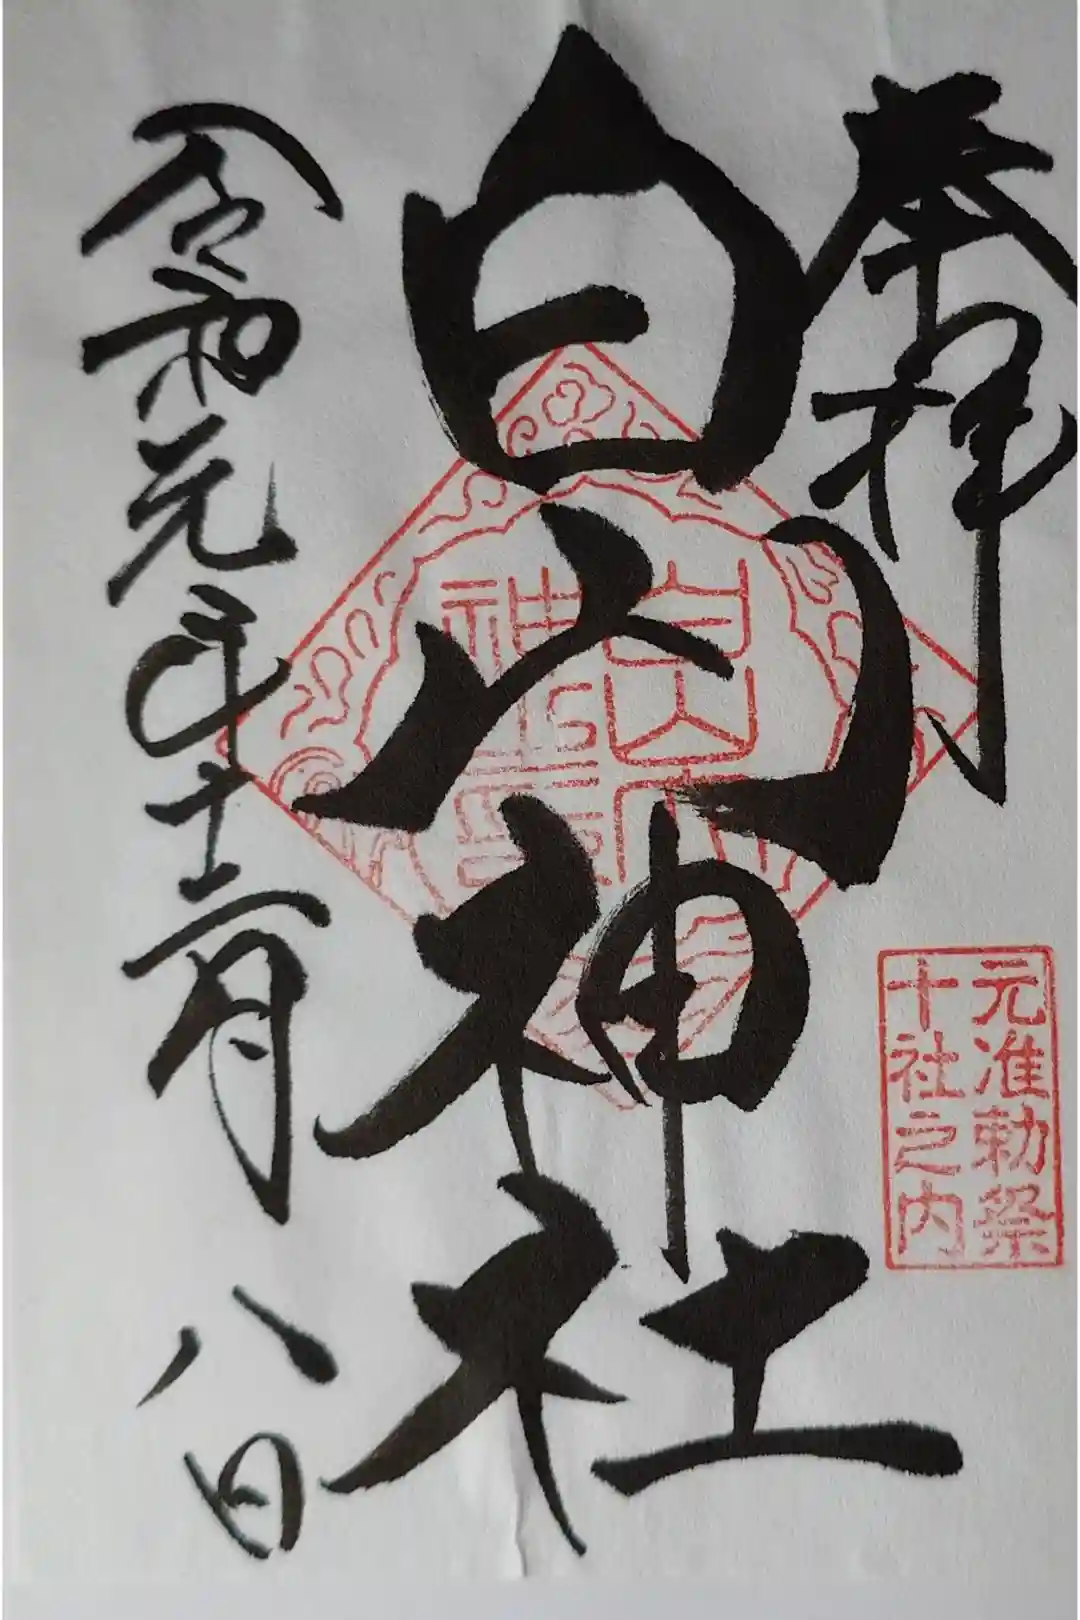 奉拝
元准勅祭
十社之内
白山神社
令和元年十二月八日